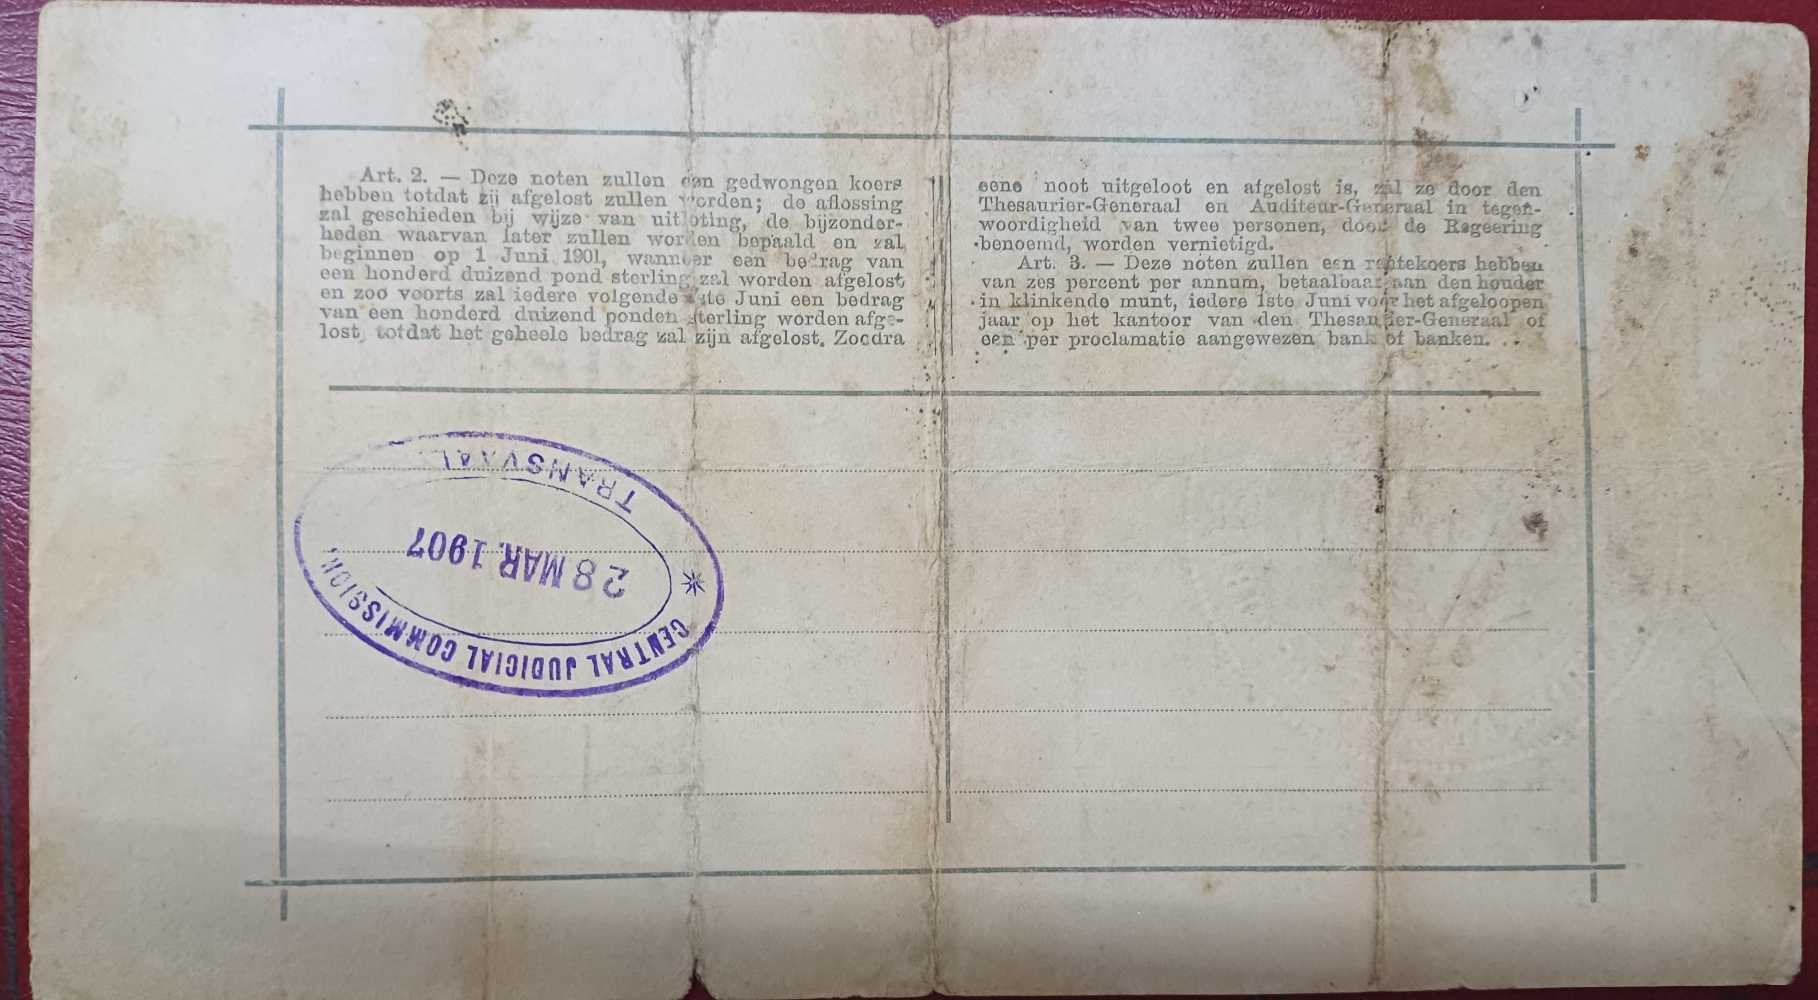 Art. 2. — Deze noten zullen een gedwongen koers
hebben totdat zij afgelost zullen worden; de aflossing
zal geschieden bij wijze van uitloting, de bijzonder-
heden waarvan later zullen worden bepaald en zal
beginnen op 1 Juni 1901, wanneer een bedrag van
een honderd duizend pond sterling zal worden afgelost
en zoo voorts zal iedere volgende 1ste Juni een bedrag
van een honderd duizend ponden sterling worden afge-
lost, totdat het geheele bedrag zal zijn afgelost. Zoodra
eene noot uitgeloot en afgelost is, zal ze door den
Thesaurier-Generaal en Auditeur-Generaal in tegen-
woordigheid van twee personen, door de Regeering
benoemd, worden vernietigd.
Art. 3. — Deze noten zullen een rentekoers hebben
van zes percent per annum, betaalbaar aan den houder
in klinkende munt, iedere 1ste Juni voor het afgeloopen
jaar op het kantoor van den Thesaurier-Generaal of
een per proclamatie aangewezen bank of banken.
CENTRAL JUDICIAL COMMISSION
28 MAR. 1907
TRANSVAAL